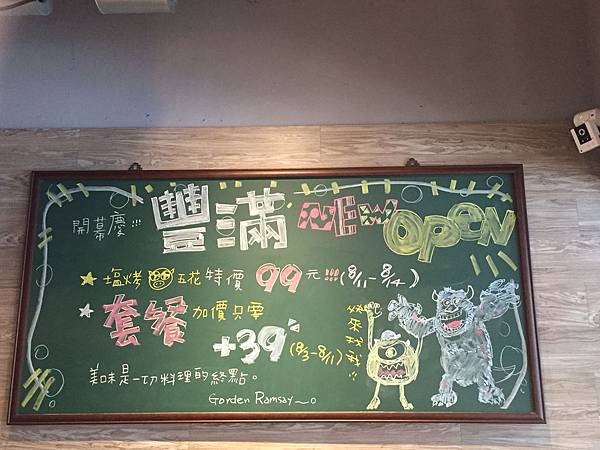 開幕慶!!! 豐滿 NEW OPEN
★ 塩烤 五花 特價 99 元!!! (8/11-8/14)
★ 套餐 加價只需 +39 (8/3-8/11)
美味是一切料理的終點。
Gorden Ramsay